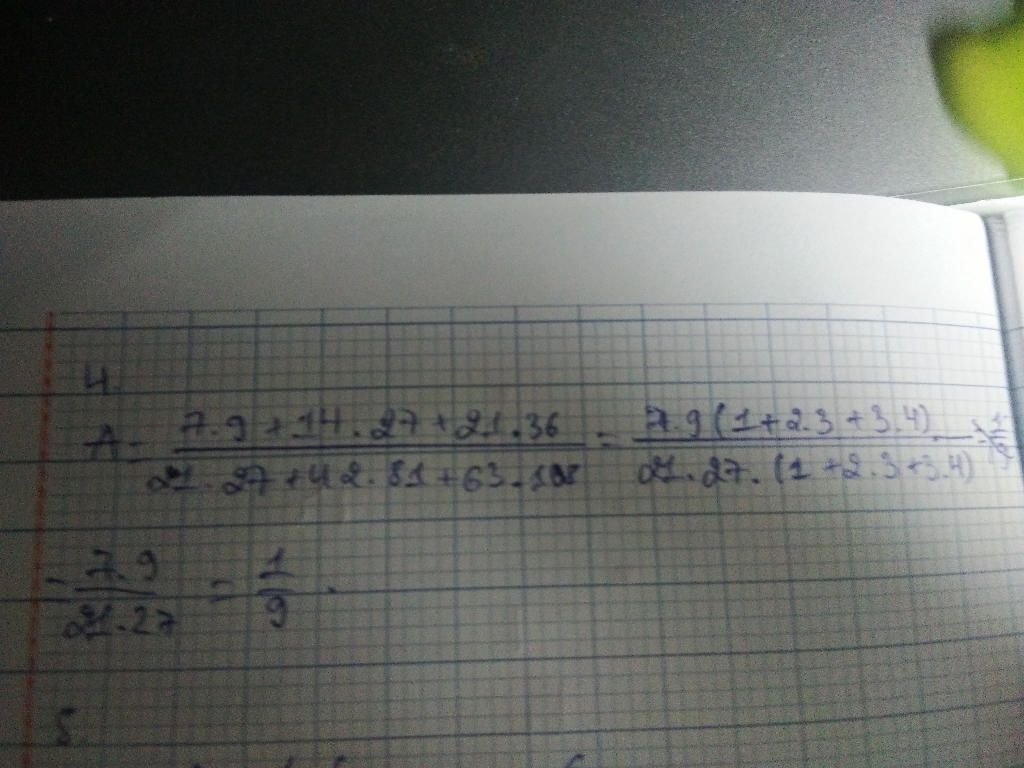 4.
A = \frac{7.9+14.27+21.36}{21.27+42.81+63.108} = \frac{7.9(1+2.3+3.4)}{21.27.(1+2.3+3.4)} =
= \frac{7.9}{21.27} = \frac{1}{9}.
5.